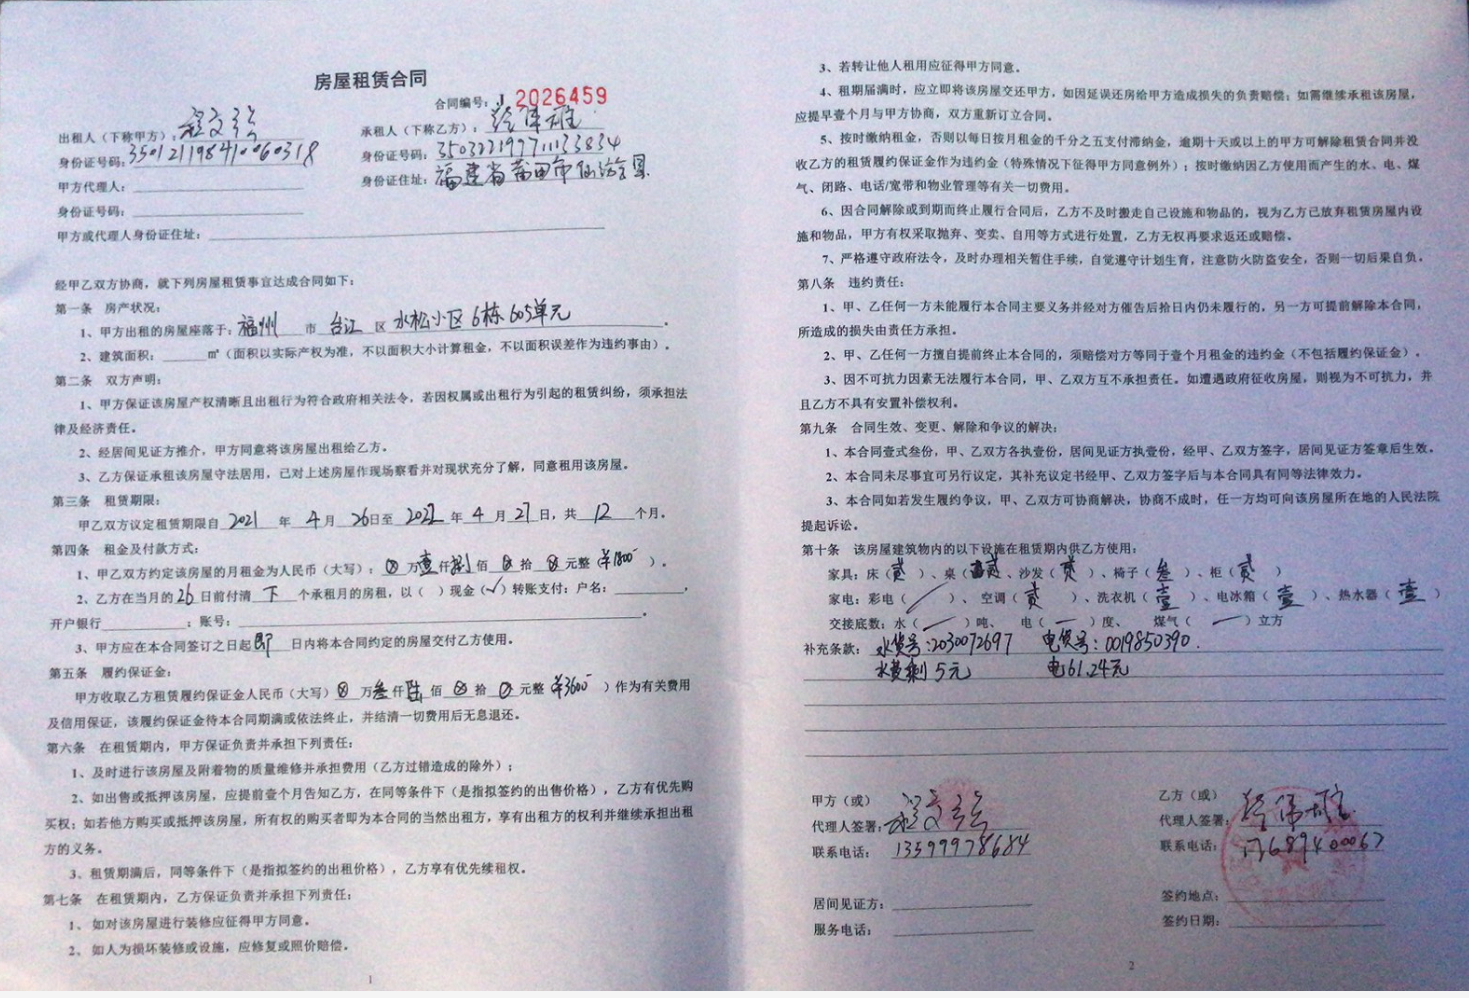 房屋租赁合同
合同编号：J 2026459
出租人（下称甲方）：程文
承租人（下称乙方）：
身份证号码：
身份证号码：
甲方代理人：
身份证住址：福建省莆田市仙游县
身份证号码：
甲方或代理人身份证住址：
经甲乙双方协商，就下列房屋租赁事宜达成合同如下：
第一条 房产状况：
1、甲方出租的房屋座落于：福州 市 台江 区 水松小区6栋605单元。
2、建筑面积：㎡（面积以实际产权为准，不以面积大小计算租金，不以面积误差作为违约事由）。
第二条 双方声明：
1、甲方保证该房屋产权清晰且出租行为符合政府相关法令，若因权属或出租行为引起的租赁纠纷，须承担法
律及经济责任。
2、经居间见证方推介，甲方同意将该房屋出租给乙方。
3、乙方保证承租该房屋守法居用，已对上述房屋作现场察看并对现状充分了解，同意租用该房屋。
第三条 租赁期限：
甲乙双方议定租赁期限自 2021 年 4 月 26 日至 2022 年 4 月 27 日，共 12 个月。
第四条 租金及付款方式：
1、甲乙双方约定该房屋的月租金为人民币（大写）：⊗ 万 壹 仟 捌 佰 ⊗ 拾 ⊗ 元整（¥1800）。
2、乙方在当月的 26 日前付清 下 个承租月的房租，以（ ）现金（√）转账支付：户名：，
开户银行；账号：。
3、甲方应在本合同签订之日起 即 日内将本合同约定的房屋交付乙方使用。
第五条 履约保证金：
甲方收取乙方租赁履约保证金人民币（大写）⊗ 万 叁 仟 陆 佰 ⊗ 拾 ⊗ 元整（¥3600）作为有关费用
及信用保证，该履约保证金待本合同期满或依法终止，并结清一切费用后无息退还。
第六条 在租赁期内，甲方保证负责并承担下列责任：
1、及时进行该房屋及附着物的质量维修并承担费用（乙方过错造成的除外）；
2、如出售或抵押该房屋，应提前壹个月告知乙方，在同等条件下（是指拟签约的出售价格），乙方有优先购
买权；如若他方购买或抵押该房屋，所有权的购买者即为本合同的当然出租方，享有出租方的权利并继续承担出租
方的义务。
3、租赁期满后，同等条件下（是指拟签约的出租价格），乙方享有优先续租权。
第七条 在租赁期内，乙方保证负责并承担下列责任：
1、如对该房屋进行装修应征得甲方同意。
2、如人为损坏装修或设施，应修复或照价赔偿。
1
3、若转让他人租用应征得甲方同意。
4、租期届满时，应立即将该房屋交还甲方，如因延误还房给甲方造成损失的负责赔偿；如需继续承租该房屋，
应提早壹个月与甲方协商，双方重新订立合同。
5、按时缴纳租金，否则以每日按月租金的千分之五支付滞纳金，逾期十天或以上的甲方可解除租赁合同并没
收乙方的租赁履约保证金作为违约金（特殊情况下征得甲方同意例外）；按时缴纳因乙方使用而产生的水、电、煤
气、闭路、电话/宽带和物业管理等有关一切费用。
6、因合同解除或到期而终止履行合同后，乙方不及时搬走自己设施和物品的，视为乙方已放弃租赁房屋内设
施和物品，甲方有权采取抛弃、变卖、自用等方式进行处置，乙方无权再要求返还或赔偿。
7、严格遵守政府法令，及时办理相关暂住手续，自觉遵守计划生育，注意防火防盗安全，否则一切后果自负。
第八条 违约责任：
1、甲、乙任何一方未能履行本合同主要义务并经对方催告后拾日内仍未履行的，另一方可提前解除本合同，
所造成的损失由责任方承担。
2、甲、乙任何一方擅自提前终止本合同的，须赔偿对方等同于壹个月租金的违约金（不包括履约保证金）。
3、因不可抗力因素无法履行本合同，甲、乙双方互不承担责任。如遭遇政府征收房屋，则视为不可抗力，并
且乙方不具有安置补偿权利。
第九条 合同生效、变更、解除和争议的解决：
1、本合同壹式叁份，甲、乙双方各执壹份，居间见证方执壹份，经甲、乙双方签字，居间见证方签章后生效。
2、本合同未尽事宜可另行议定，其补充议定书经甲、乙双方签字后与本合同具有同等法律效力。
3、本合同如若发生履约争议，甲、乙双方可协商解决，协商不成时，任一方均可向该房屋所在地的人民法院
提起诉讼。
第十条 该房屋建筑物内的以下设施在租赁期内供乙方使用：
家具：床（贰）、桌（贰）、沙发（贰）、椅子（叁）、柜（贰）
家电：彩电（／）、空调（贰）、洗衣机（壹）、电冰箱（壹）、热水器（壹）
交接底数：水（／）吨、电（—）度、煤气（—）立方
补充条款：水费号：2030072697 电费号：0019850390.
水费剩5元 电61.24元
甲方（或）
代理人签署：程文
联系电话：13599978684
乙方（或）
代理人签署：
联系电话：
居间见证方：
服务电话：
签约地点：
签约日期：
2